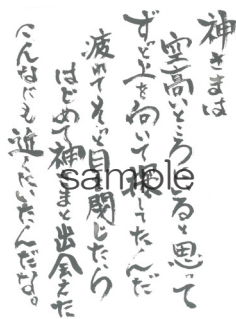 神さまは
空高いところにいると思って
ずっと上を向いて探してたんだ
疲れてそっと目閉じたら
はじめて神さまと出会えた
こんなにも近くにいたんだな。
sample